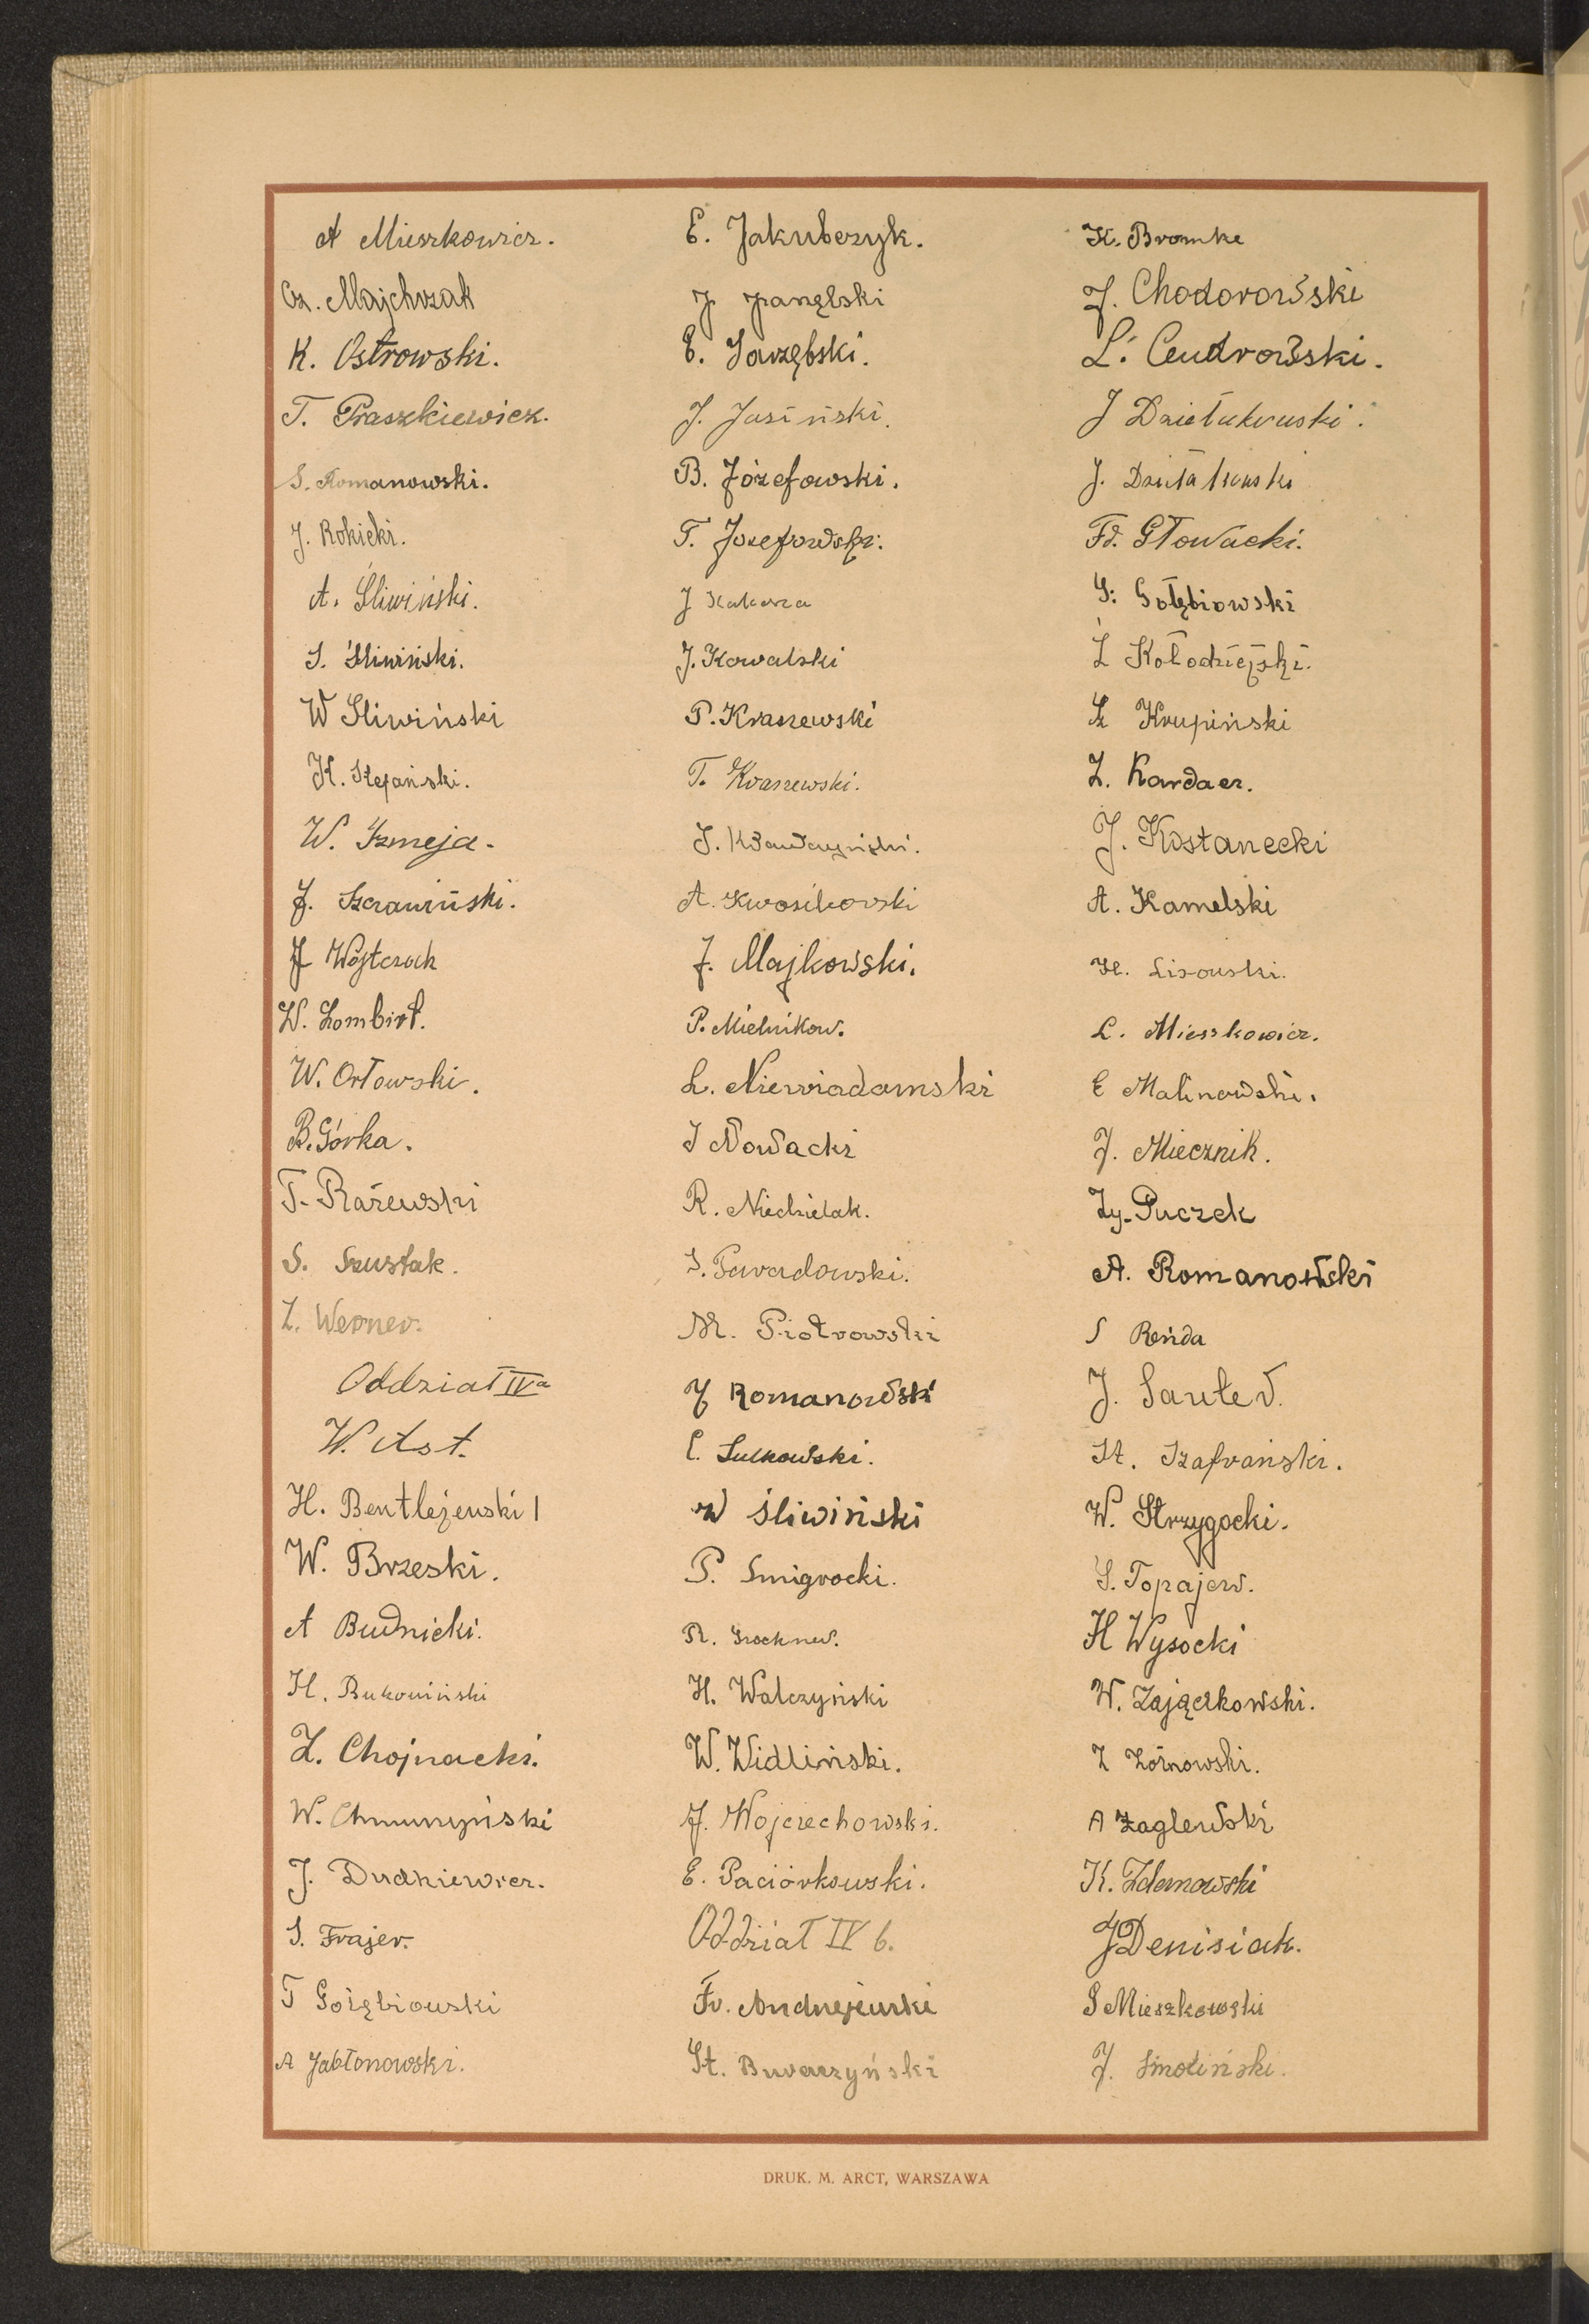 A Mieszkowicz.
Cz. Majchrzak
K. Ostrowski.
T. Praszkiewicz.
S. Romanowski.
J. Rokicki.
A. Śliwiński.
S. Śliwiński.
W Śliwiński
K. Stefański.
W. Szmeja.
J. Szczawiński.
J Wojtczak
W. Lombirt.
W. Orłowski.
B. Górka.
T. Rażewski
S. Szustak.
Z. Werner.
Oddział IVa
W. Ast.
H. Bentlejewski
W. Brzeski.
A Budnicki.
H. Bukowiński
Z. Chojnacki.
W.
J. Dudkiewicz.
S. Frajer.
T Gołębiowski
A Jabłonowski.
E. Jakubczyk.
J
E. Jarzębski.
J. Jasiński.
B. Józefowski.
T. Józefowski.
J
J. Kowalski
P. Kraszewski
T. Kraszewski.
S.
A. Kwosikowski
J. Majkowski.
P. Mielnikow.
L. Niewiadomski
J Nowacki
R. Niedzielak.
S.
M. Piotrowski
J Romanowski
E. Sulkowski.
W Śliwiński
P. Smigrocki.
R.
H. Walczyński
W. Widliński.
J. Wojciechowski.
E. Paciórkowski.
Oddział IV b.
Fr. Andrzejewski
St. Burczyński
K. Bromke
J. Chodorowski
L. Cendrowski.
J Dzietakowski.
J.
Fr. Głowacki.
S. Gołębiowski
L Kołodziejski.
L Krupiński
Z. Kardacz.
J. Kostanecki
A. Kamelski
H. Lisowski.
L. Mieszkowicz.
E Malinowski.
J. Miecznik.
Zy. Puczek
A. Romanowski
S Reńda
J. Sauter.
St. Szafrański.
W. Strzygocki.
S. Topajew.
H Wysocki
W. Zajączkowski.
Z Zórnowski.
A Zaglewski
K. Zdanowski
J Denisiak.
S Mieszkowski
J. Smoliński.
DRUK. M. ARCT, WARSZAWA